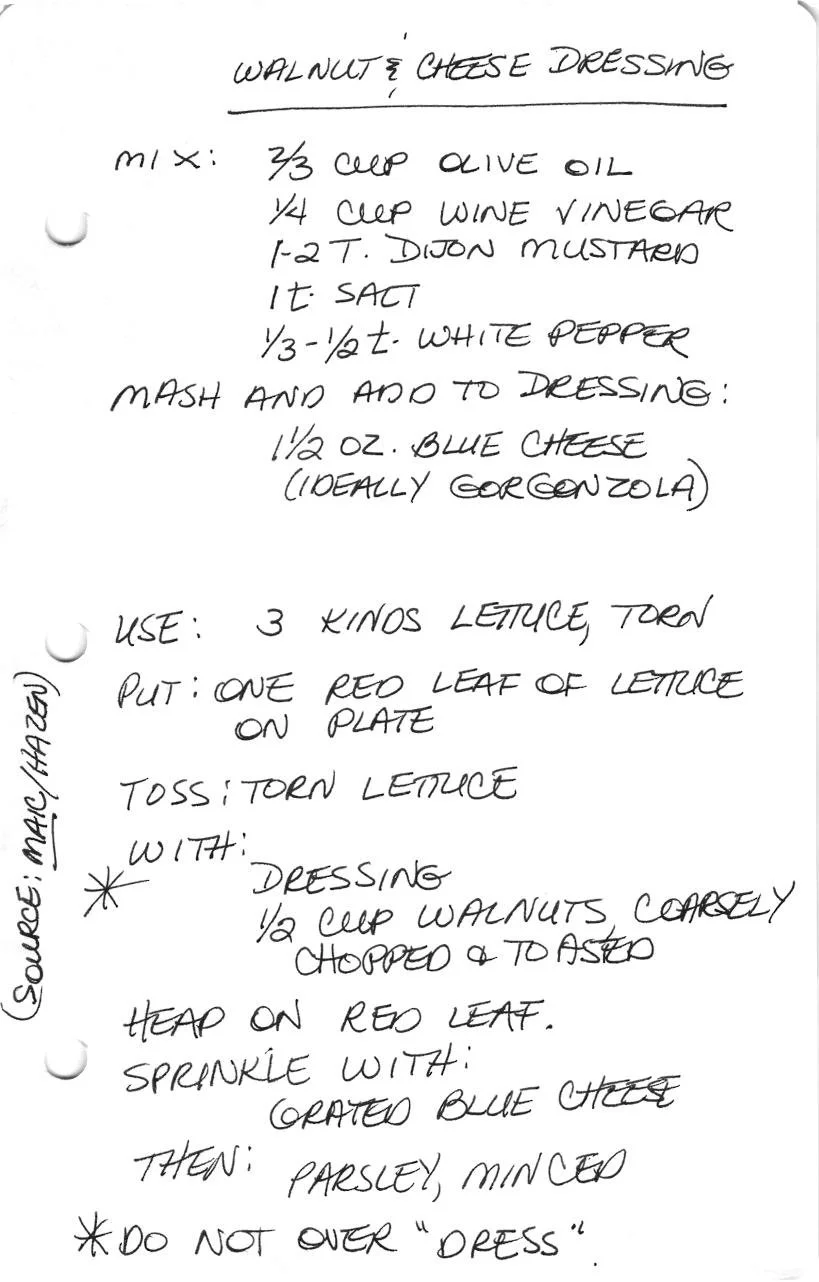 WALNUT & CHEESE DRESSING
MIX: 2/3 CUP OLIVE OIL
1/4 CUP WINE VINEGAR
1-2 T. DIJON MUSTARD
1 t. SALT
1/3-1/2 t. WHITE PEPPER
MASH AND ADD TO DRESSING:
1 1/2 OZ. BLUE CHEESE
(IDEALLY GORGONZOLA)
USE: 3 KINDS LETTUCE, TORN
PUT: ONE RED LEAF OF LETTUCE
ON PLATE
TOSS: TORN LETTUCE
WITH:
* DRESSING
1/2 CUP WALNUTS, COARSELY
CHOPPED & TOASTED
HEAP ON RED LEAF.
SPRINKLE WITH:
GRATED BLUE CHEESE
THEN: PARSLEY, MINCED
* DO NOT OVER "DRESS".
(SOURCE: MAIC/HAZEN)